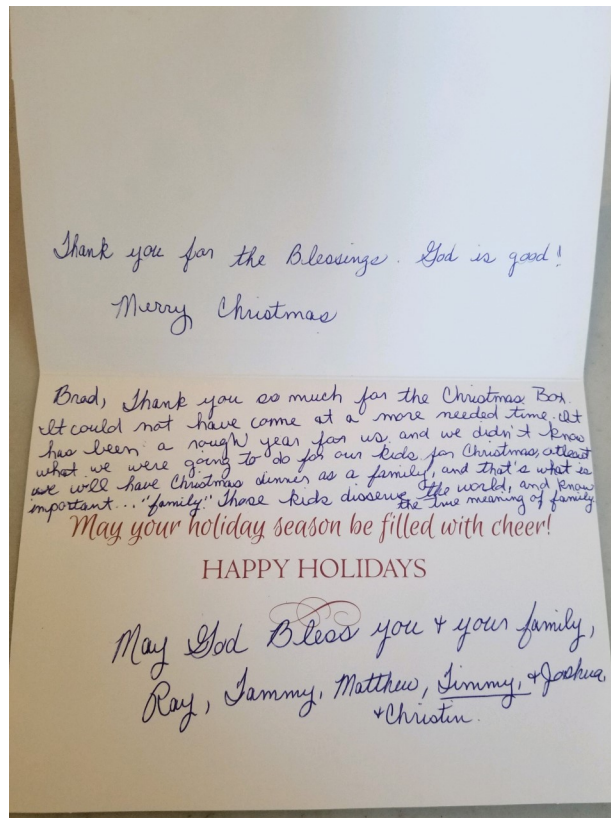 Thank you for the Blessings. God is good!
Merry Christmas
Brad, Thank you so much for the Christmas Box.
It could not have come at a more needed time. It
has been a rough year for us, and we didn't know
what we were going to do for our kids for Christmas, atleast
we will have Christmas dinner as a family, and that's what is
important... "family." Those kids disserve the world, and know
the true meaning of family.
May your holiday season be filled with cheer!
HAPPY HOLIDAYS
May God Bless you & your family,
Ray, Tammy, Matthew, Timmy, & Joshua
& Christin.